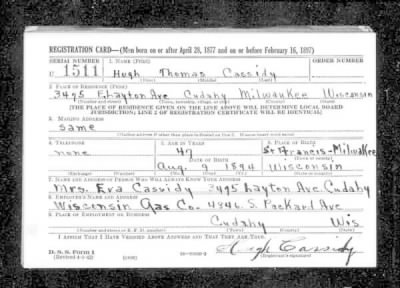 REGISTRATION CARD—(Men born on or after April 28, 1877 and on or before February 16, 1897)
SERIAL NUMBER 1. NAME (Print) ORDER NUMBER
U 1511 Hugh Thomas Cassidy
(First) (Middle) (Last)
2. PLACE OF RESIDENCE (Print)
3495 E. Layton Ave Cudahy Milwaukee Wisconsin
(Number and street) (Town, township, village, or city) (County) (State)
[THE PLACE OF RESIDENCE GIVEN ON THE LINE ABOVE WILL DETERMINE LOCAL BOARD
JURISDICTION; LINE 2 OF REGISTRATION CERTIFICATE WILL BE IDENTICAL]
3. MAILING ADDRESS
Same
(Mailing address if other than place indicated on line 2. If same insert word same)
4. TELEPHONE 5. AGE IN YEARS 6. PLACE OF BIRTH
none 47 St Francis-Milwaukee
DATE OF BIRTH (Town or county)
Aug 9 1894 Wisconsin
(Exchange) (Number) (Mo.) (Day) (Yr.) (State or country)
7. NAME AND ADDRESS OF PERSON WHO WILL ALWAYS KNOW YOUR ADDRESS
Mrs. Eva Cassidy 3495 Layton Ave Cudahy
8. EMPLOYER'S NAME AND ADDRESS
Wisconsin Gas Co. 4846 S. Packard Ave
9. PLACE OF EMPLOYMENT OR BUSINESS
Cudahy Wis
(Number and street or R. F. D. number) (Town) (County) (State)
I AFFIRM THAT I HAVE VERIFIED ABOVE ANSWERS AND THAT THEY ARE TRUE.
D. S. S. Form 1 Hugh Cassidy
(Revised 4-1-42) (over) (Registrant's signature)